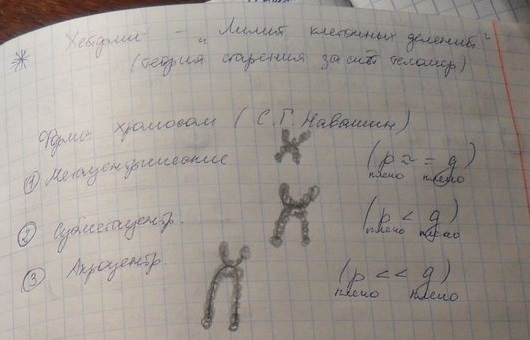 * Хейфлик – „Лимит клеточных делений"
(теория старения за счёт теломер)
Формы хромосом (С.Г. Навашин)
① Метацентрические (p ≈ = q)
плечо плечо
② Субметацентр. (p < q)
плечо плечо
③ Акроцентр. (p << q)
плечо плечо